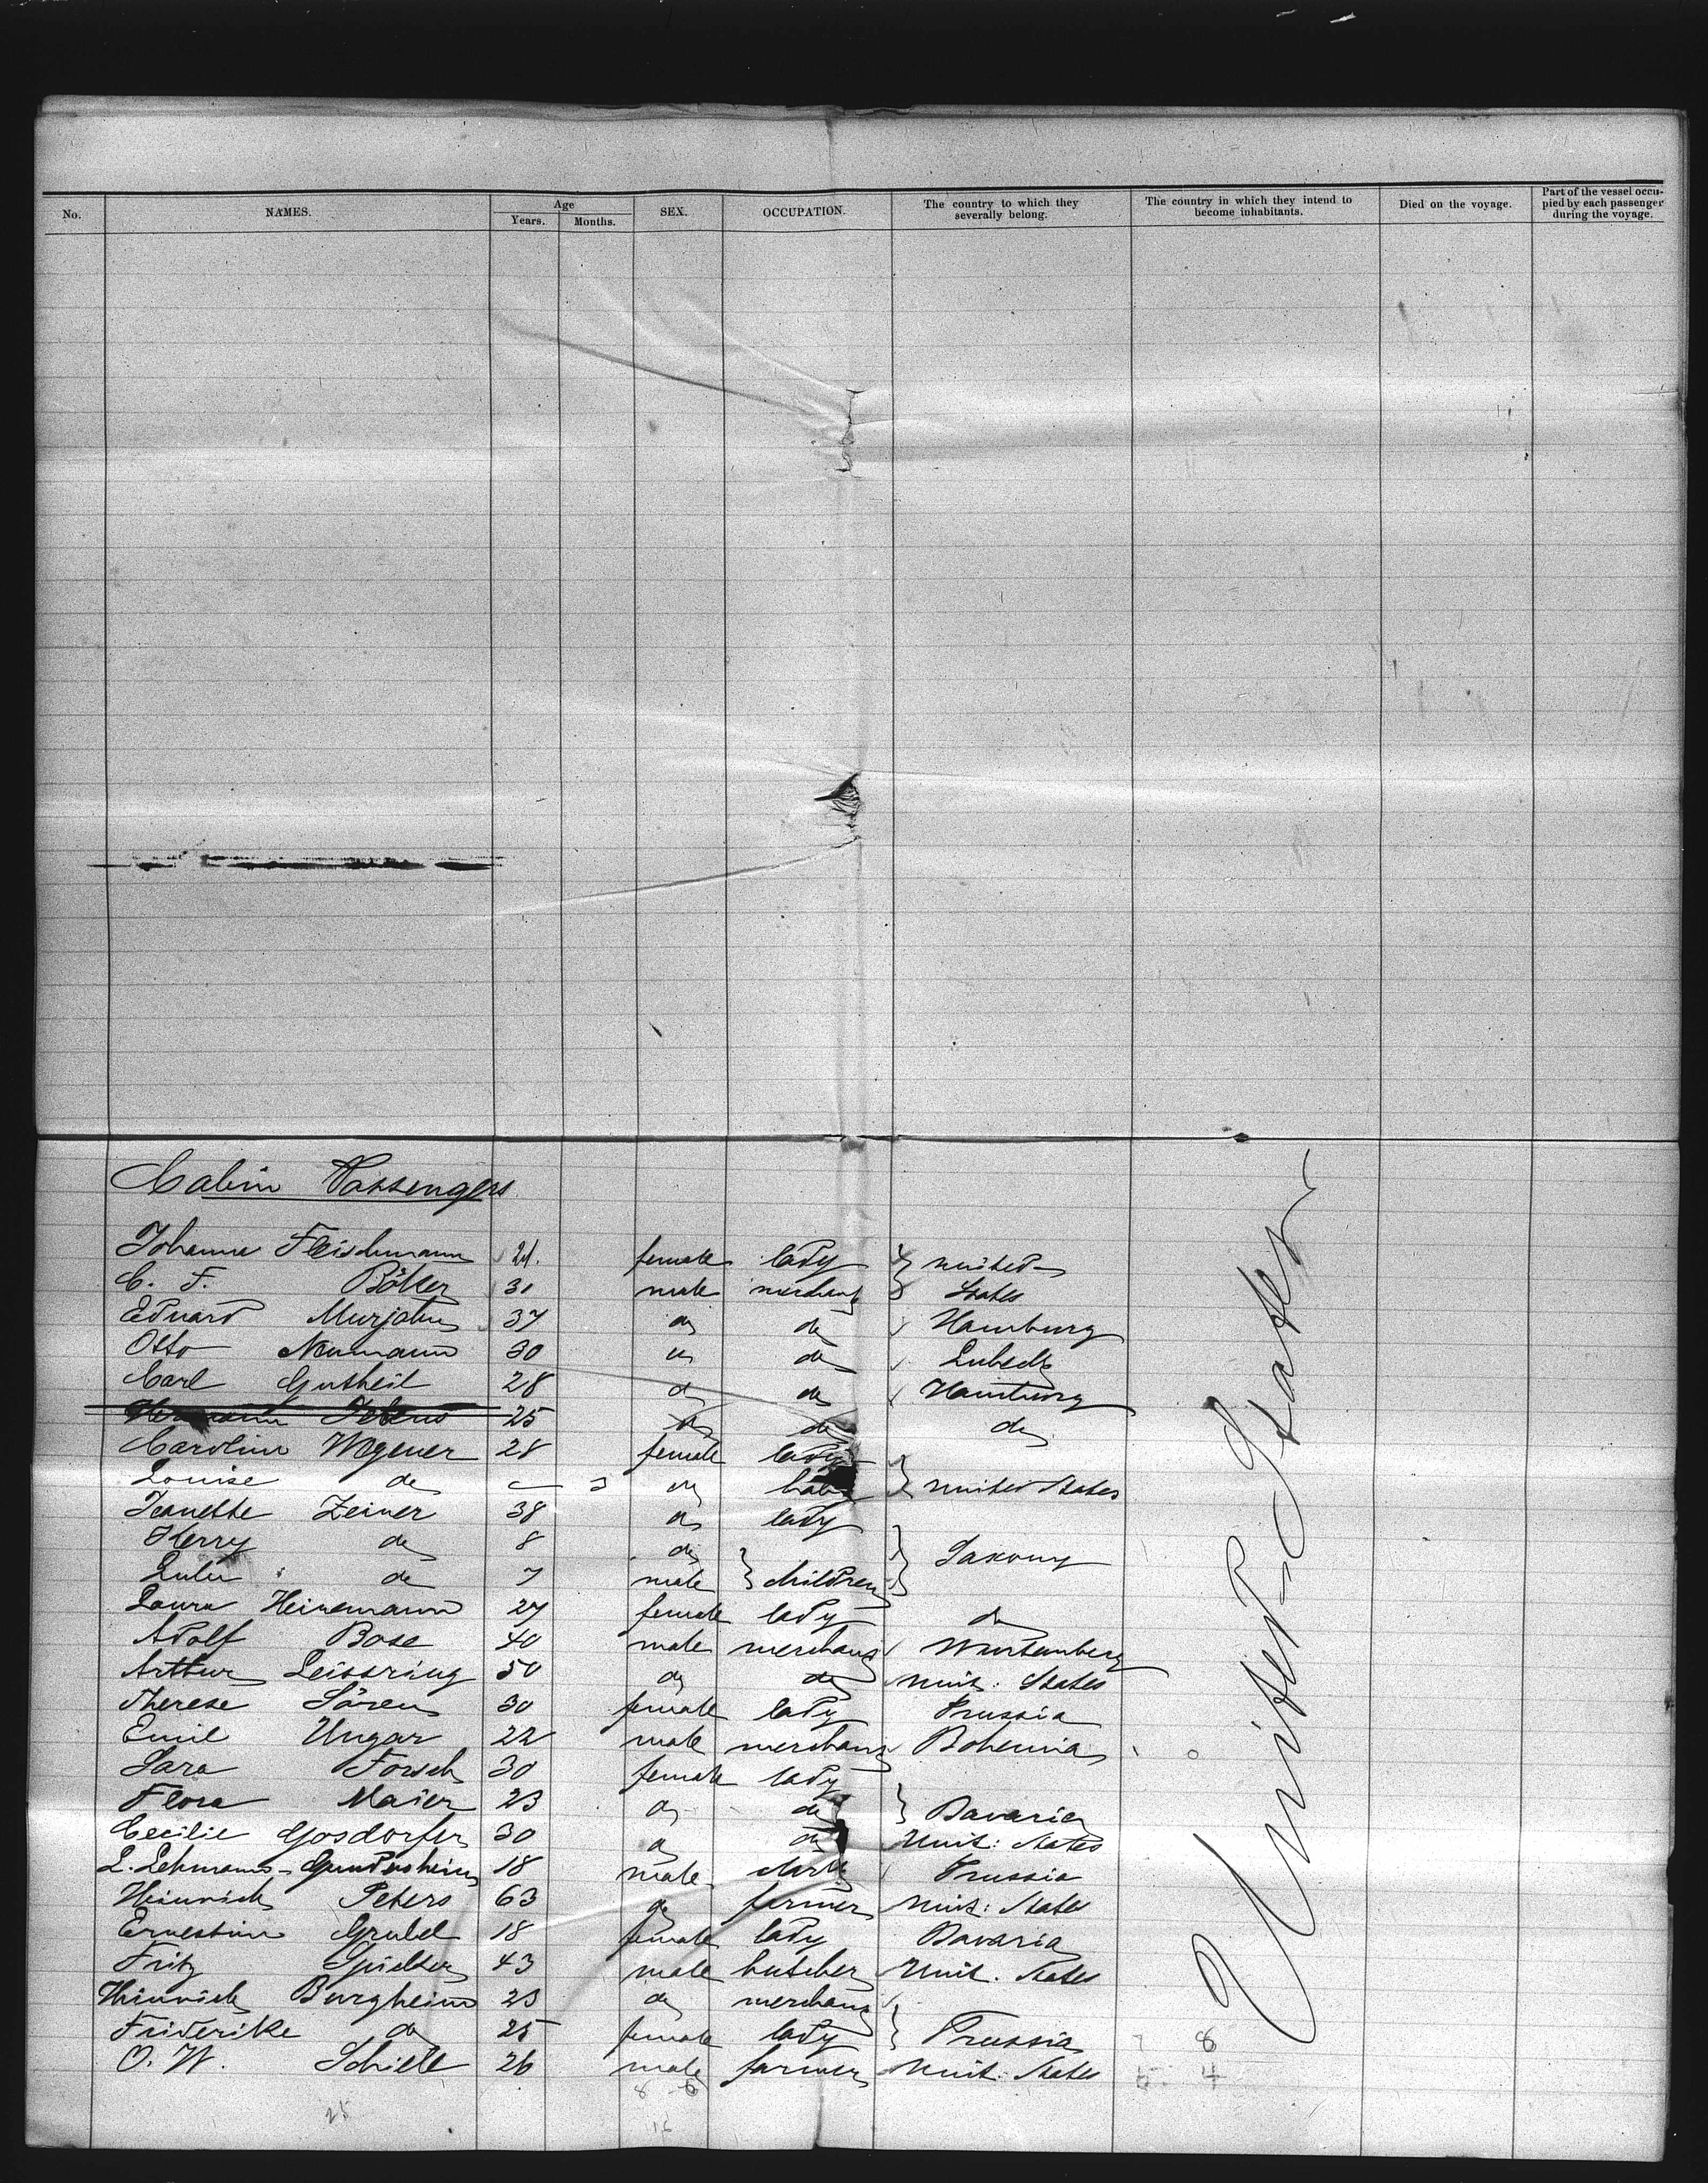 No. NAMES. Age Years. Months. SEX. OCCUPATION. The country to which they severally belong. The country in which they intend to become inhabitants. Died on the voyage. Part of the vessel occupied by each passenger during the voyage.
Cabin Passengers
Johanna Fleischmann 21. female lady } United
C. F. Böker 31 male merchant } States
Eduard Murjahn 37 do do Hamburg
Otto Neumann 30 do do Lubeck
Carl Gutheil 28 do do Hamburg
25 do do do
Caroline Wegener 28 female lady
Louise do — 3 do baby } United States
Jeanette Zeiner 38 do lady
Herry do 8 do } Saxony
Lulu do 7 male } children
Laura Heinemann 27 female lady do
Adolf Bose 40 male merchant Wurtemberg
Arthur Leissring 50 do do Unit: States
Therese Sören 30 female lady Prussia
Emil Ungar 22 male merchant Bohemia
Sara Forsch 30 female lady
Flora Maier 23 do do } Bavaria
Cecilie Gosdorfer 30 do do Unit: States
L. Lehmann-Gundersheim 18 male clark Prussia
Heinrich Peters 63 do farmer Unit: States
Ernestine Grubel 18 female lady Bavaria
Fritz 43 male butcher Unit. States
Heinrich Burgheim 23 do merchant
Friderike do 25 female lady } Prussia 7 8
O. W. Schiele 26 male farmer Unit: States 5 4
8 6
25 16
United-States